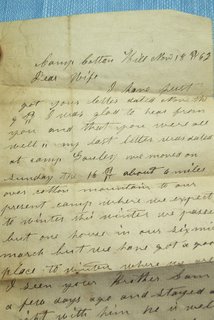 Camp Cotton Hill Nov 18th 62
Dear Wife
I have just
got your letter dated Nov the
9th I was glad to hear from
you and that you were all
well my last letter was dated
at camp Gauley we moved on
Sunday the 16th about 6 miles
over cotton mountain to our
present camp where we expect
to winter this winter we passed
but one house in our six mile
march but we have got a good
place to winter where we are
I seen your Brother Sam
a few days ago and stayed a
night with him he is well